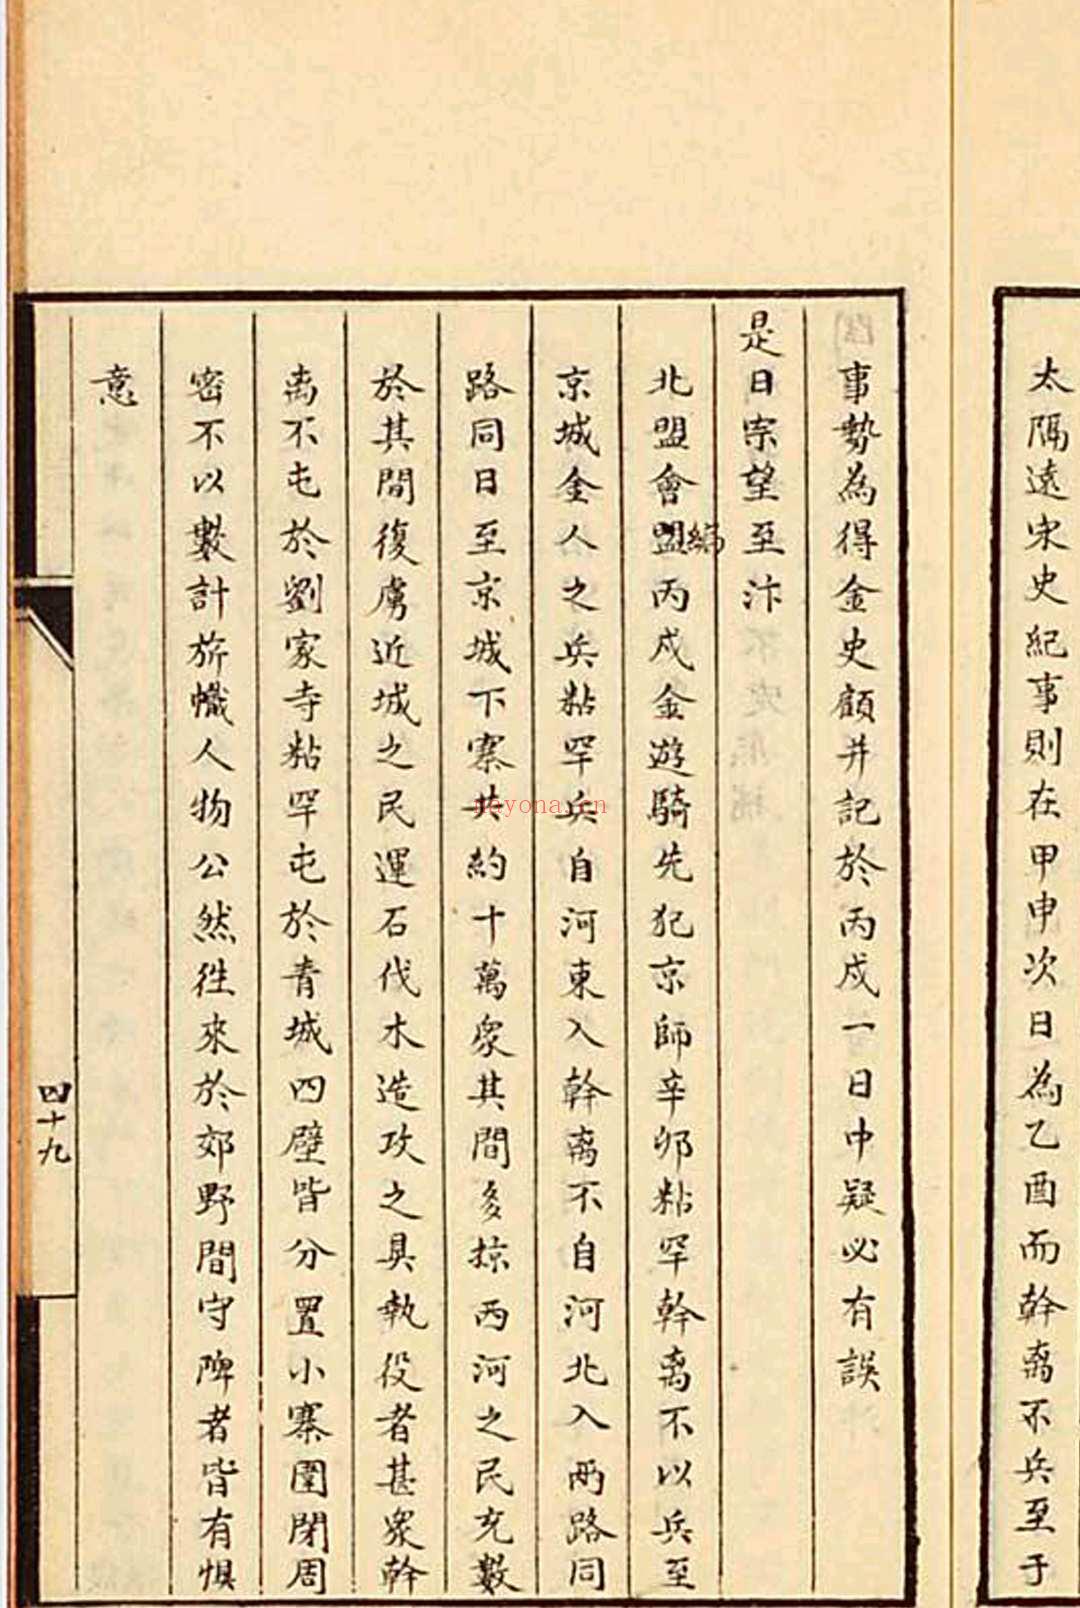 太隔遠宋史紀事則在甲申次日為乙酉而幹离不兵至于
事勢為得金史願并記於丙戍一日中疑必有誤
是日宗望至汴
北盟會盟編丙戍金遊騎先犯京師辛卯粘罕幹离不以兵至
京城金人之兵粘罕兵自河東入幹离不自河北入两路同
路同日至京城下寨共約十萬衆其間多掠两河之民充數
於其間復虜近城之民運石伐木造攻之具執役者甚衆幹
离不屯於劉家寺粘罕屯於青城四壁皆分置小寨圍閉周
密不以數計旂幟人物公然徃來於郊野間守陴者皆有惧
意
四十九